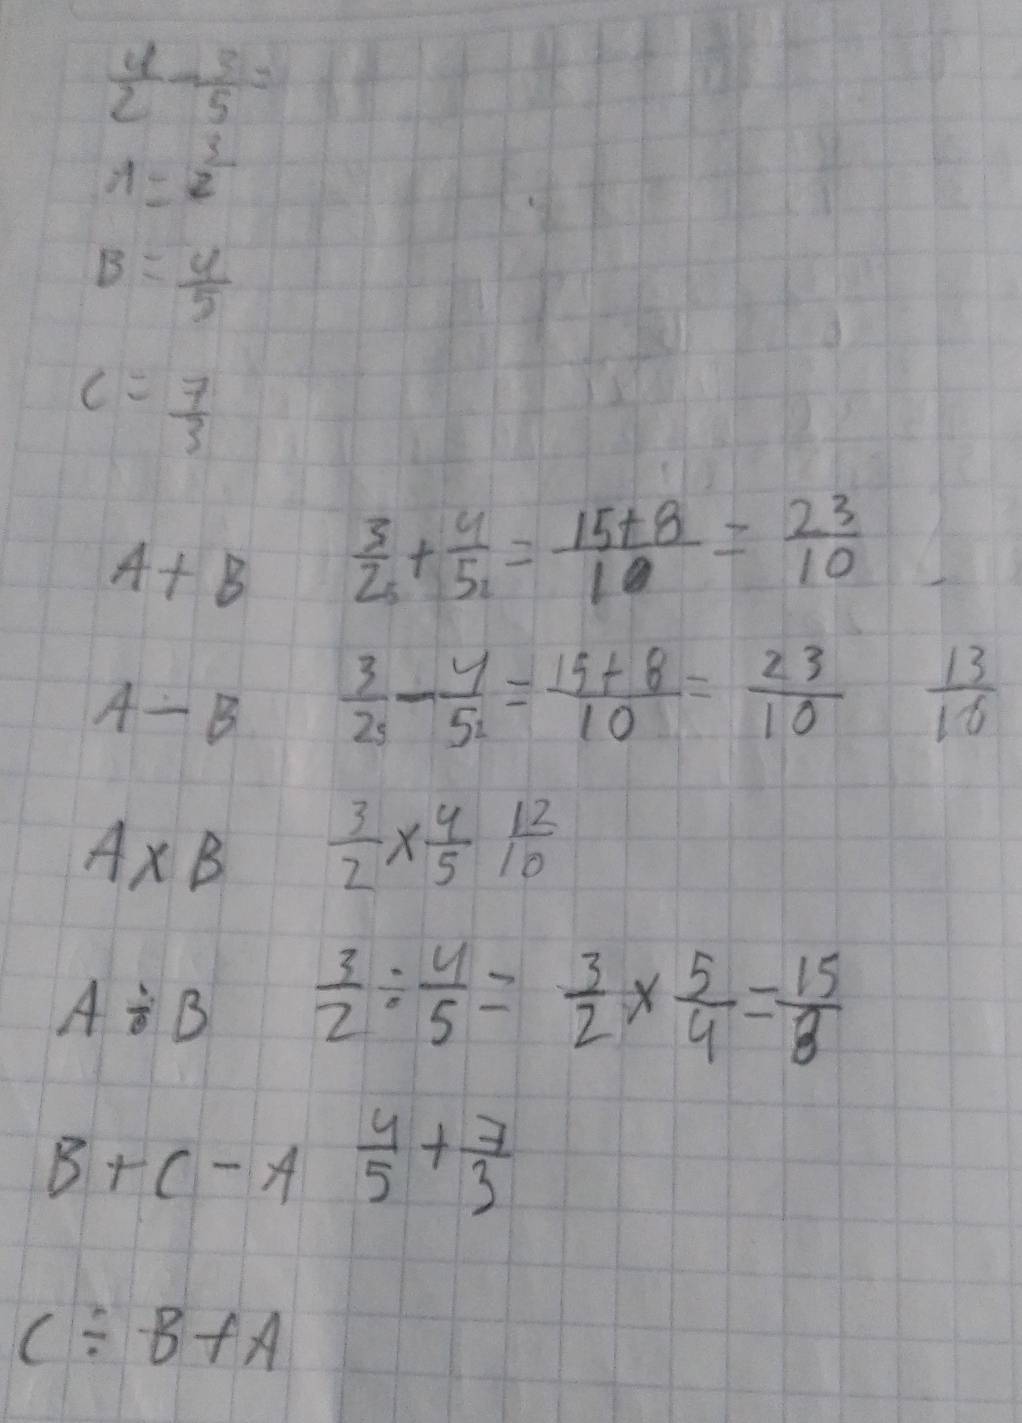 4/2 - 3/5 =
A = 3/2
B = 4/5
C = 7/3
A + B 3/2₅ + 4/5₂ = 15+8/10 = 23/10
A - B 3/2₅ - 4/5₂ = 15+8/10 = 23/10 13/10
A x B 3/2 x 4/5 12/10
A ÷ B 3/2 ÷ 4/5 = 3/2 x 5/4 = 15/8
B + C - A 4/5 + 7/3
C ÷ B + A